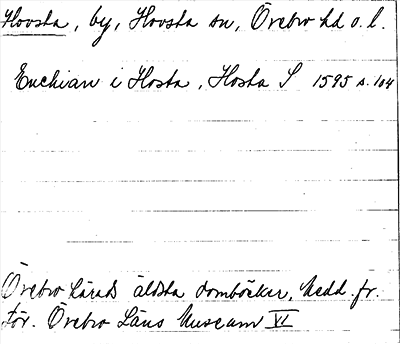 Hovsta, by, Hovsta sn, Örebro hd o. l.
Enchian i Hosta, Hosta S 1595 s. 104
Örebro härads äldsta domböcker, Medd. fr.
För. Örebro Läns Museum VI